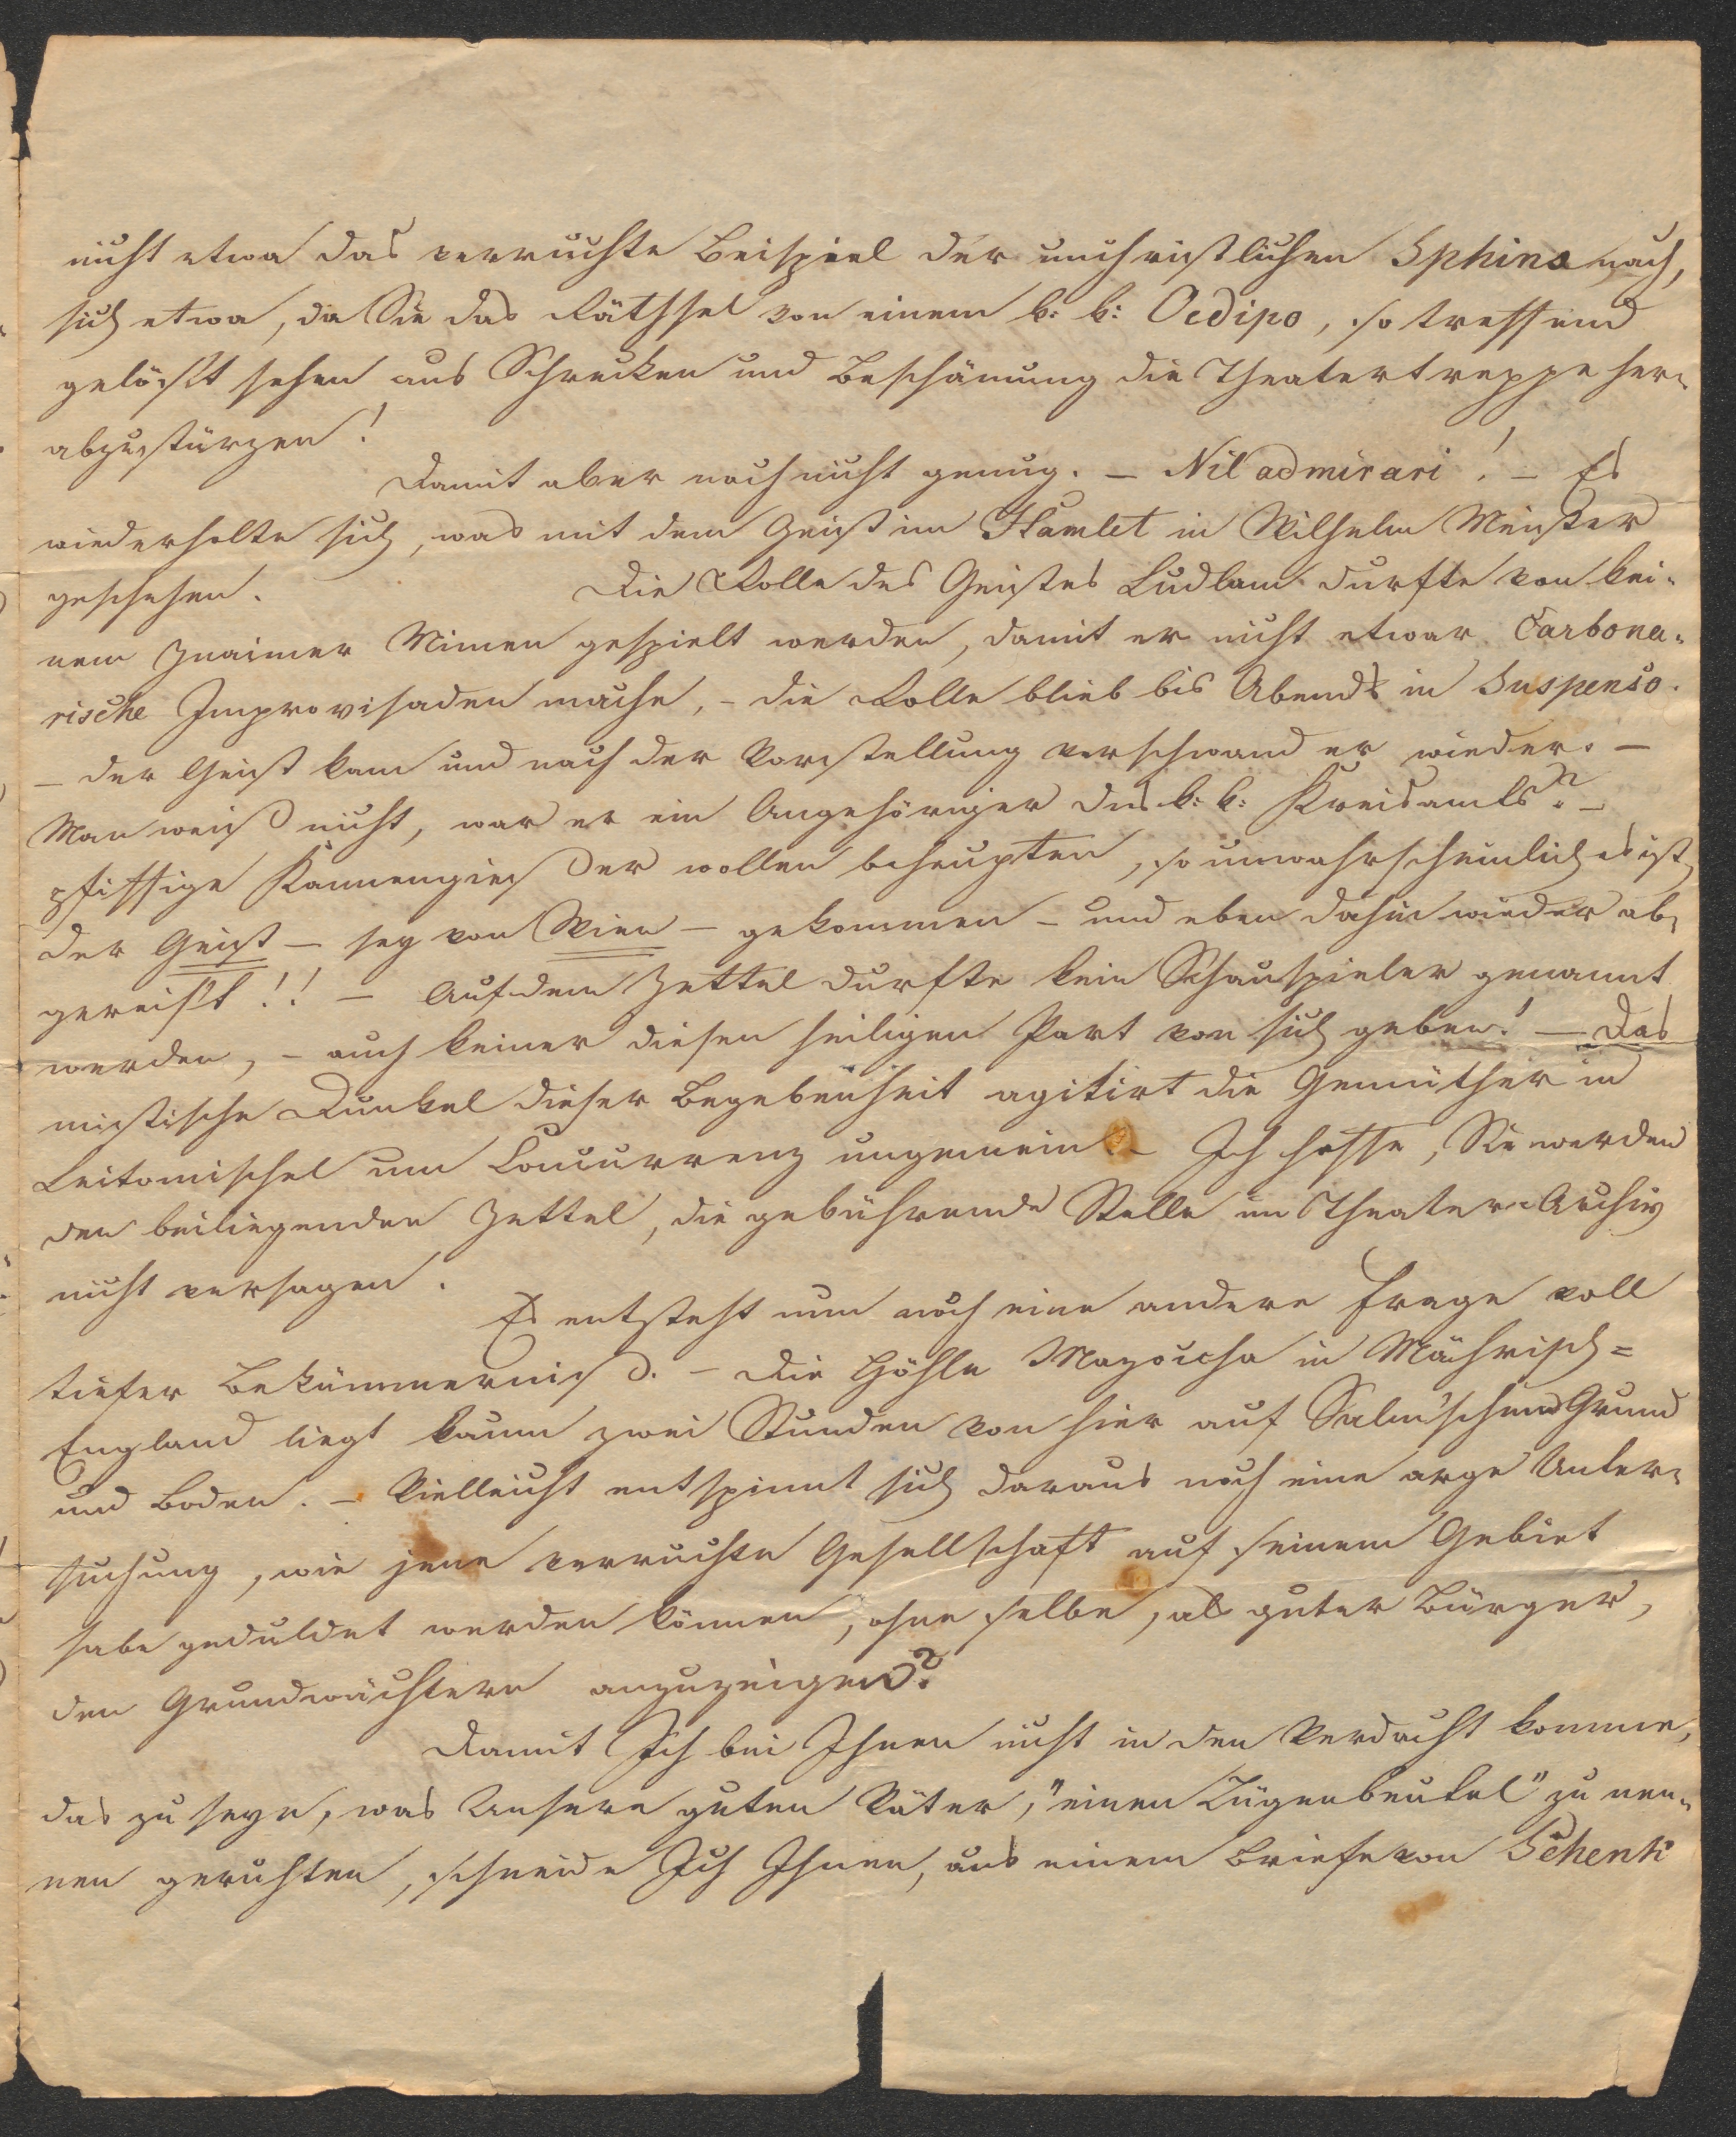 nicht etwa das verruchte Beispiel der unchristlichen Sphinx nach,
sich etwa, da Sie das Räthsel von einem k: k: Oedipo, so treffend
gelöst sehen aus Schrecken und Beschämung die Theatertreppe her„
abzustürzen!
Damit aber noch nicht genug. – Nil admirari! – Es
wiederholte sich, was mit dem Geist im Hamlet in Wilhelm Meister
geschehen. Die Rolle des Geistes Ludlam durfte von kei„
nem Znaimer Mimen gespielt werden, damit er nicht etwar Carbona„
rische Improvisaden mache, – die Rolle blieb bis Abends in Suspenso.
– der Geist kam und nach der Vorstellung verschwand er wieder. –
Man weiß nicht, war er ein Angehöriger des k: k: Kreisamts? –
pfiffige Kannengießer wollen behaupten, so unwahrscheinlich es ist,
der Geist – sey von Wien – gekommen – und eben dahin wieder ab„
gereist!! – Auf dem Zettel durfte kein Schauspieler genannt
werden, – auch keiner diesen heiligen Part von sich geben! – Das
mistische Dunkel dieser Begebenheit agitirt die Gemüther in
Leitomischel um Concurrenz ungemein! – Ich hoffe, Sie werden
den beiliegenden Zettel, die gebührende Stelle im Theater-Archiv
nicht versagen.
Es entsteht nun noch eine andere Frage voll
tiefer Bekümmerniß. – Die Höhle Mazoicha in Mährisch=
England liegt kaum zwei Stunden von hier auf Salm'schem Grund
und Boden. – Vielleicht entspinnt sich daraus noch eine arge Unter„
suchung, wie jene verruchte Gesellschaft auf seinem Gebiet
habe geduldet werden können, ohne selbe, als guter Bürger,
den Grundwächtern anzuzeigen?
Damit Ich bei Ihnen nicht in den Verdacht komme,
das zu seyn, was Unsere guten Väter, "einen Lügenbeutel" zu nen„
nen geruhten, schneide Ich Ihnen, aus einem Briefe von Schenk